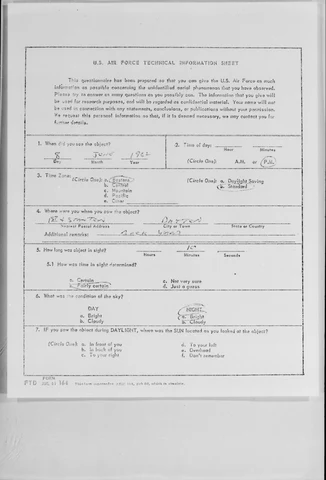 U.S. AIR FORCE TECHNICAL INFORMATION SHEET
This questionnaire has been prepared so that you can give the U.S. Air Force as much
information as possible concerning the unidentified aerial phenomenon that you have observed.
Please try to answer as many questions as you possibly can. The information that you give will
be used for research purposes, and will be regarded as confidential material. Your name will not
be used in connection with any statements, conclusions, or publications without your permission.
We request this personal information so that, if it is deemed necessary, we may contact you for
further details.
1. When did you see the object?
8 June 1962
Day Month Year
2. Time of day:
Hour Minutes
(Circle One): A.M. or P.M.
3. Time Zone:
(Circle One): a. Eastern
b. Central
c. Mountain
d. Pacific
e. Other
(Circle One): a. Daylight Saving
b. Standard
4. Where were you when you saw the object?
DAYTON
Nearest Postal Address City or Town State or Country
Additional remarks:
5. How long was object in sight?
Hours Minutes Seconds
5.1 How was time in sight determined?
a. Certain
b. Fairly certain
c. Not very sure
d. Just a guess
6. What was the condition of the sky?
DAY
a. Bright
b. Cloudy
NIGHT
a. Bright
b. Cloudy
7. IF you saw the object during DAYLIGHT, where was the SUN located as you looked at the object?
(Circle One): a. In front of you
b. In back of you
c. To your right
d. To your left
e. Overhead
f. Don't remember
FTD FORM 164